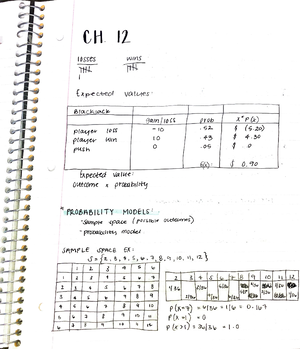 CH. 12
losses wins
Expected values:
Blackjack
gain/loss prob x*P(x)
player loss -10 .52 $ (5.20)
player win 10 .43 $ 4.30
push 0 .05 $ 0
E(x): $ 0.90
Expected value:
outcome x probability
*PROBABILITY MODELS
- sample space (possible outcomes)
- probabilities model
SAMPLE SPACE EX:
S = {2, 3, 4, 5, 6, 7, 8, 9, 10, 11, 12}
1 2 3 4 5 6
1 2 3 4 5 6 7
2 3 4 5 6 7 8
3 4 5 6 7 8 9
4 5 6 7 8 9 10
5 6 7 8 9 10 11
6 7 8 9 10 11 12
2 3 4 5 6 7 8 9 10 11 12
P(x=7) = 6/36 = 1/6 = 0.167
P(x=1) = 0
P(x>1) = 36/36 = 1.0